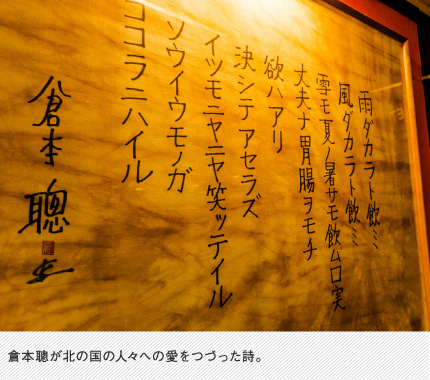 雨ダカラト飲ミ
風ダカラト飲ミ
雪モ夏ノ暑サモ飲ム口実
丈夫ナ胃腸ヲモチ
欲ハアリ
決シテアセラズ
イツモニヤニヤ笑ッテイル
ソウイウモノガ
ココラニハイル
倉本聰
倉本聰が北の国の人々への愛をつづった詩。